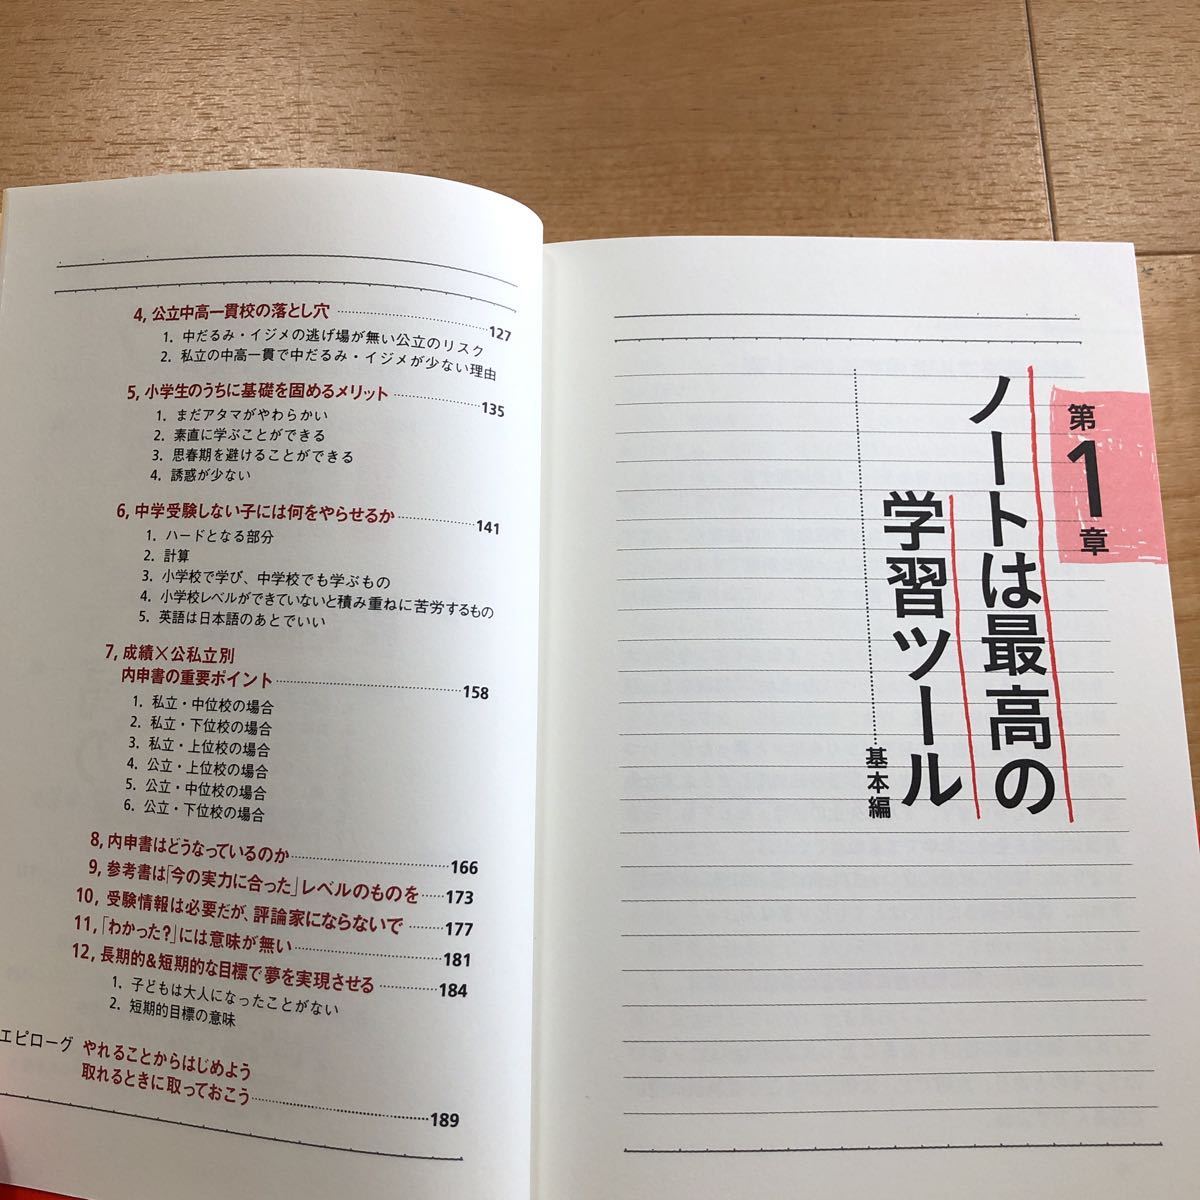 4, 公立中高一貫校の落とし穴 ……127
1. 中だるみ・イジメの逃げ場が無い公立のリスク
2. 私立の中高一貫で中だるみ・イジメが少ない理由
5, 小学生のうちに基礎を固めるメリット ……135
1. まだアタマがやわらかい
2. 素直に学ぶことができる
3. 思春期を避けることができる
4. 誘惑が少ない
6, 中学受験しない子には何をやらせるか ……141
1. ハードとなる部分
2. 計算
3. 小学校で学び、中学校でも学ぶもの
4. 小学校レベルができていないと積み重ねに苦労するもの
5. 英語は日本語のあとでいい
7, 成績×公私立別
内申書の重要ポイント ……158
1. 私立・中位校の場合
2. 私立・下位校の場合
3. 私立・上位校の場合
4. 公立・上位校の場合
5. 公立・中位校の場合
6. 公立・下位校の場合
8, 内申書はどうなっているのか ……166
9, 参考書は「今の実力に合った」レベルのものを ……173
10, 受験情報は必要だが、評論家にならないで ……177
11, 「わかった?」には意味が無い ……181
12, 長期的&短期的な目標で夢を実現させる ……184
1. 子どもは大人になったことがない
2. 短期的目標の意味
エピローグ やれることからはじめよう
取れるときに取っておこう ……189
第1章
ノートは最高の
学習ツール
……基本編